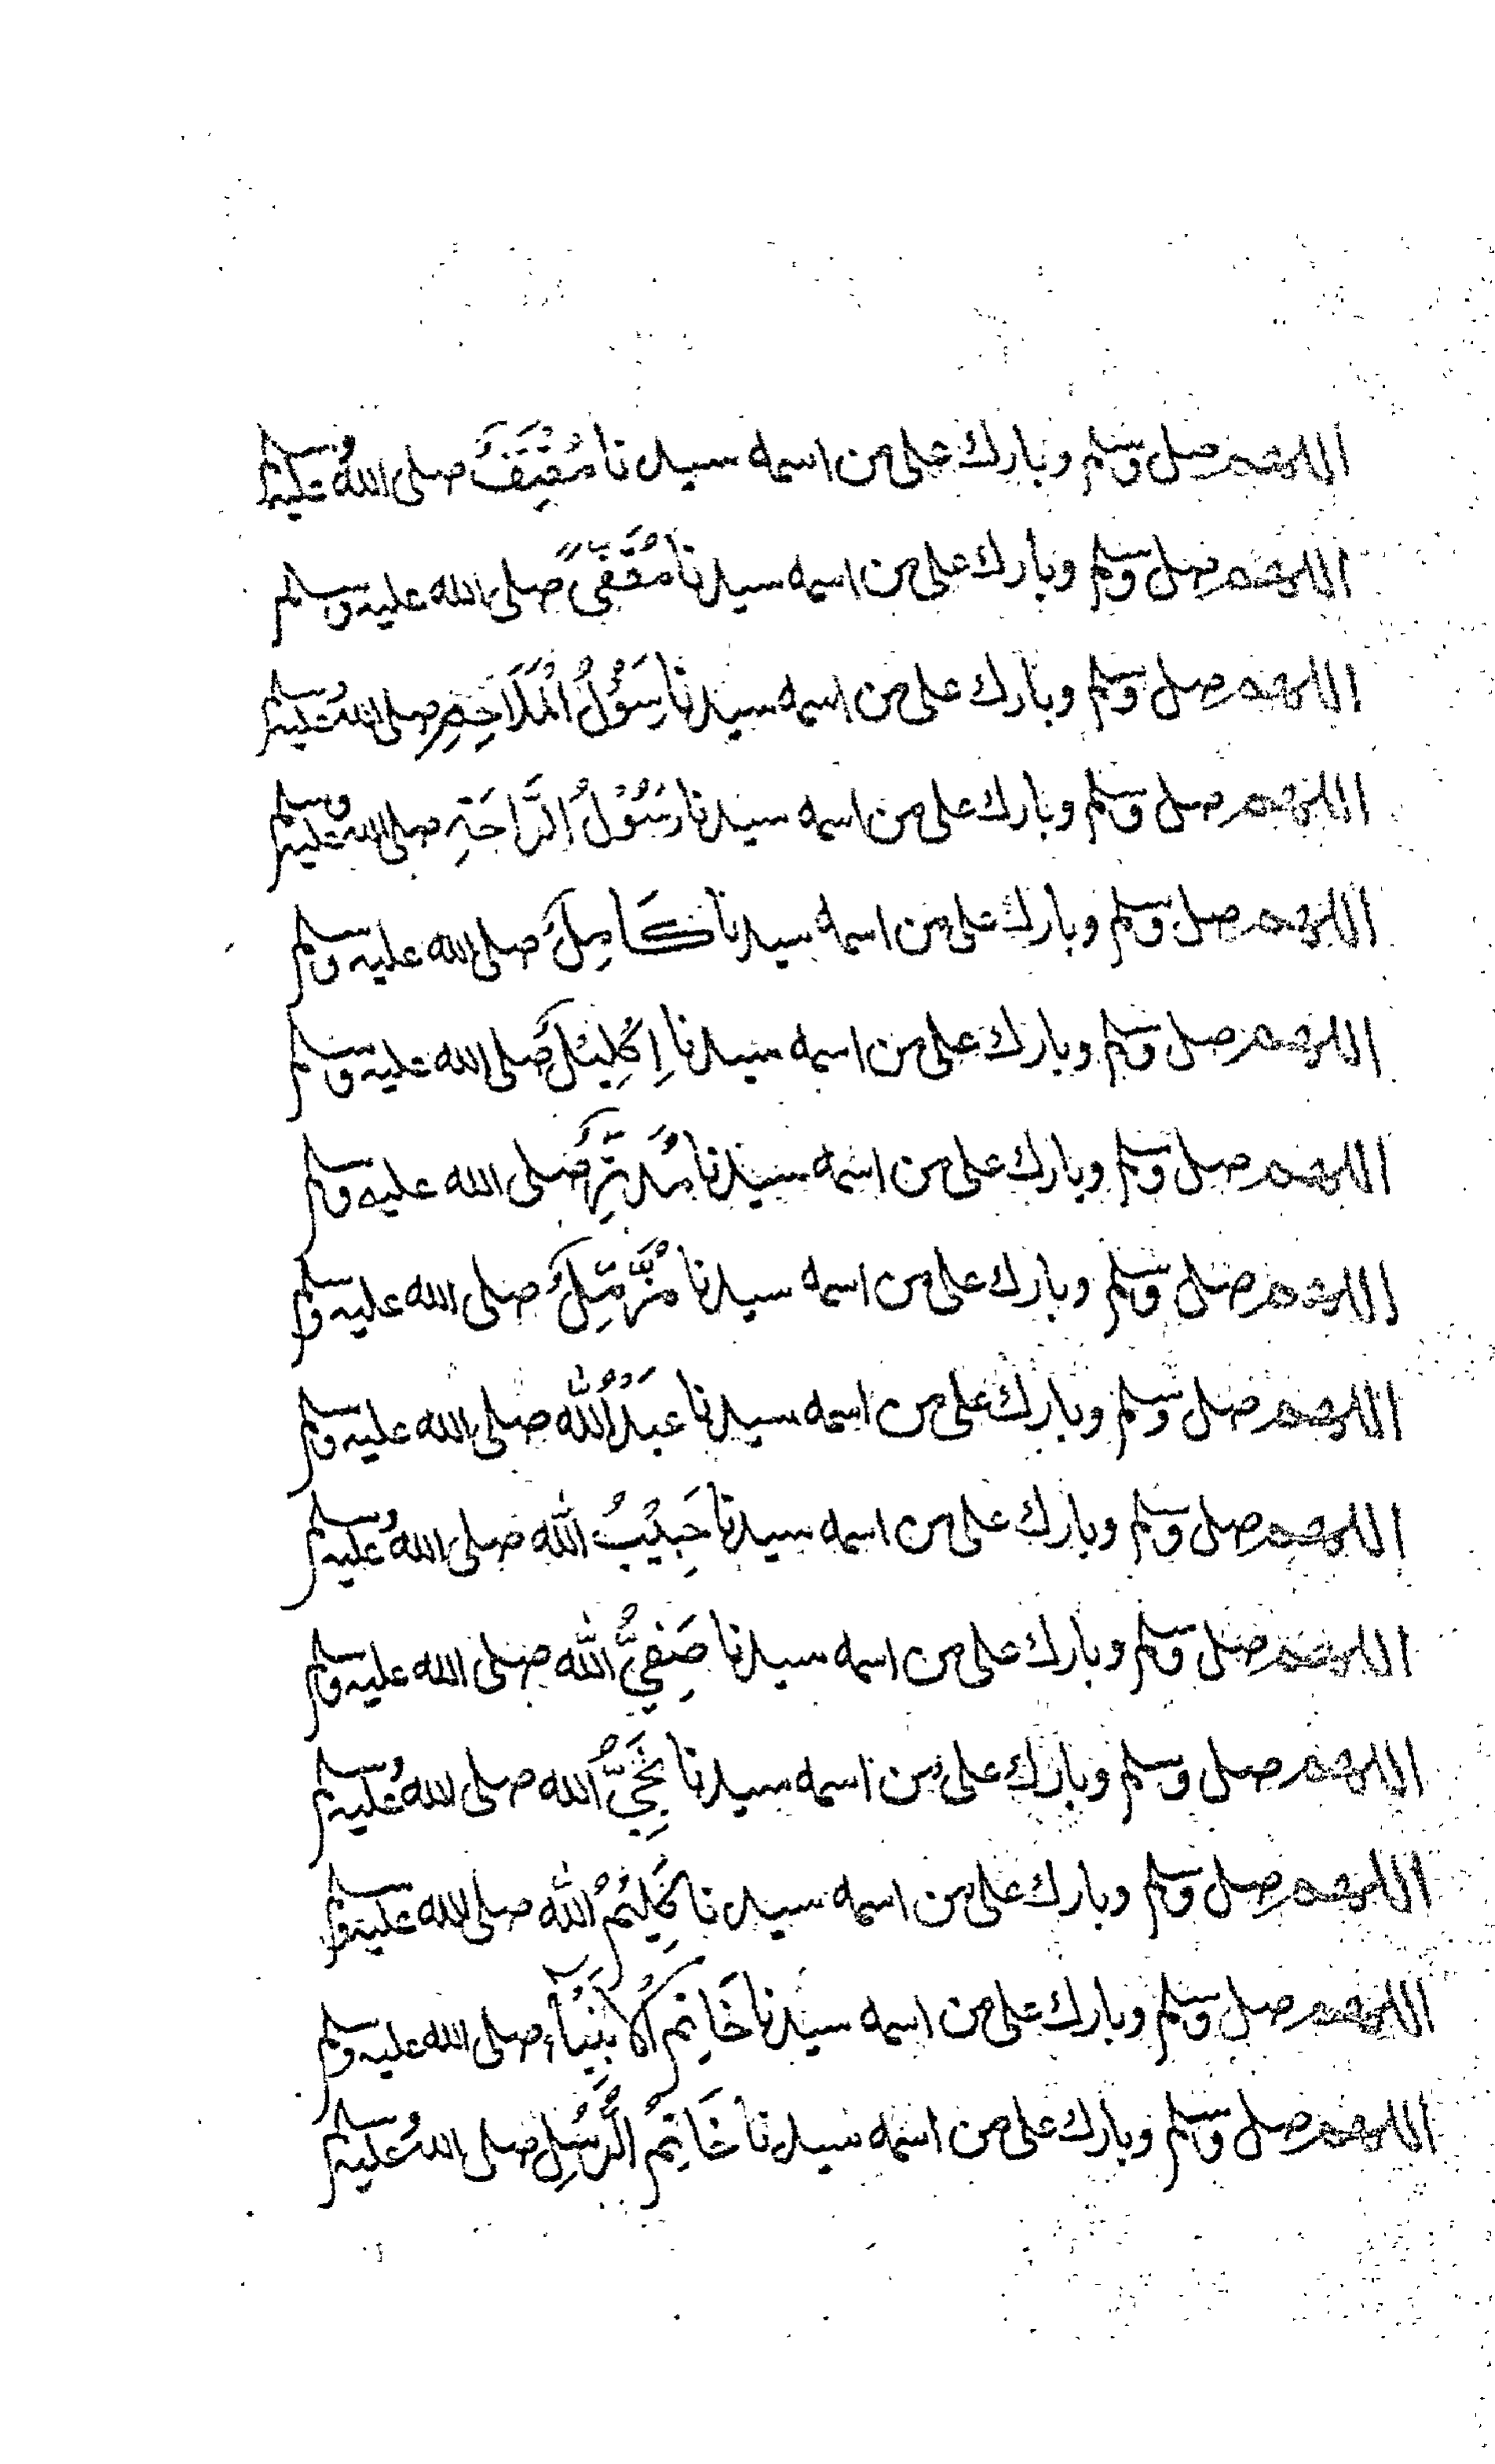 اللهم صل وسلم وبارك على من اسمه سيدنا مُقَيِّفٌ صلى الله عليه وسلم
اللهم صل وسلم وبارك على من اسمه سيدنا مُقَفًّى صلى الله عليه وسلم
اللهم صل وسلم وبارك على من اسمه سيدنا رَسُوْلُ الْمَلَاحِمِ صلى الله عليه وسلم
اللهم صل وسلم وبارك على من اسمه سيدنا رَسُوْلُ الرَّاحَةِ صلى الله عليه وسلم
اللهم صل وسلم وبارك على من اسمه سيدنا كَامِلٌ صلى الله عليه وسلم
اللهم صل وسلم وبارك على من اسمه سيدنا اِكْلِيْلٌ صلى الله عليه وسلم
اللهم صل وسلم وبارك على من اسمه سيدنا مُدَّثِّرٌ صلى الله عليه وسلم
اللهم صل وسلم وبارك على من اسمه سيدنا مُزَّمِّلٌ صلى الله عليه وسلم
اللهم صل وسلم وبارك على من اسمه سيدنا عَبْدُ اللّٰه صلى الله عليه وسلم
اللهم صل وسلم وبارك على من اسمه سيدنا حَبِيْبُ اللّٰه صلى الله عليه وسلم
اللهم صل وسلم وبارك على من اسمه سيدنا صَفِيُّ اللّٰه صلى الله عليه وسلم
اللهم صل وسلم وبارك على من اسمه سيدنا نَجِيُّ الله صلى الله عليه وسلم
اللهم صل وسلم وبارك على من اسمه سيدنا كَلِيْمُ اللّٰه صلى الله عليه وسلم
اللهم صل وسلم وبارك على من اسمه سيدنا خَاتِمُ الْاَنْبِيَآءِ صلى الله عليه وسلم
اللهم صل وسلم وبارك على من اسمه سيدنا خَاتِمُ الرُّسُلِ صلى الله عليه وسلم